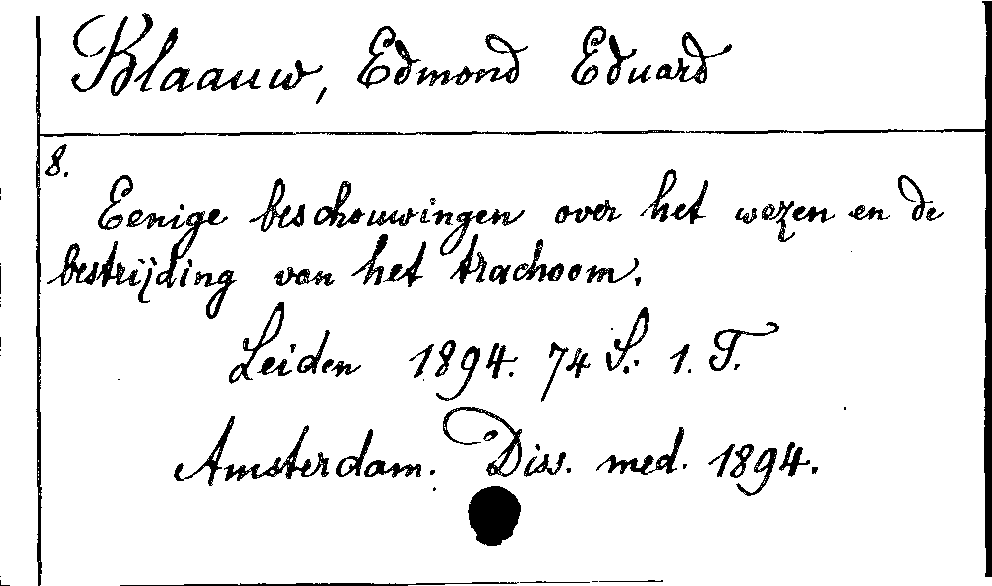 Blaauw, Edmond Eduard
8.
Eenige beschouwingen over het wezen en de
bestrijding van het trachoom.
Leiden 1894. 74 S. 1. T.
Amsterdam. Diss. med. 1894.